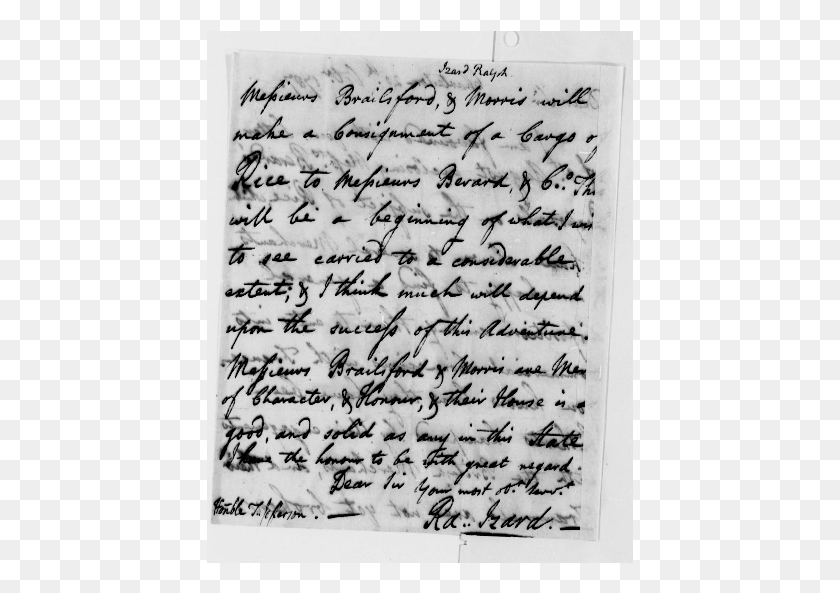 Izard Ralph
Messieurs Brailsford, & Morris will
make a Consignment of a Cargo o
Rice to Messieurs Berard, & Co. Thi
will be a beginning of what I wis
to see carried to a considerable
extent; & I think much will depend
upon the success of this Adventure.
Messieurs Brailsford & Morris are Men
of Character, & Honour, & their House is a
good, and solid as any in this State
I have the honour to be with great regard
Dear Sir Your most obt. Servt.
Honble T. Jefferson. — Ra.. Izard. —